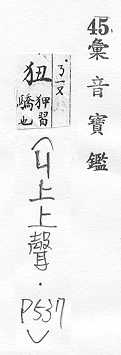 45.彙音寶鑑
ㄋㄧㄡ
狃
狎習
驕也
(丩上上聲．P537)